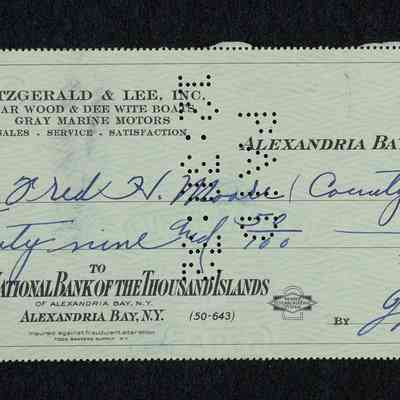 TZGERALD & LEE, INC.
AR WOOD & DEE WITE BOATS
GRAY MARINE MOTORS
SALES . SERVICE . SATISFACTION
ALEXANDRIA BA
Fred H. / County
ty nine and 50/100
TO
NATIONAL BANK OF THE THOUSAND ISLANDS
OF ALEXANDRIA BAY, N.Y.
ALEXANDRIA BAY, N.Y. (50-643)
BY
Insured against fraudulent alteration
TODD BANKERS SUPPLY N.Y.